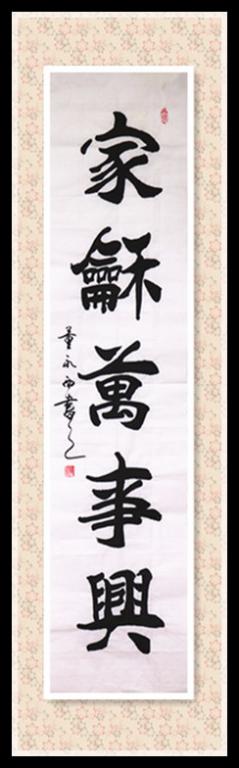 家龢萬事興
董永西書之